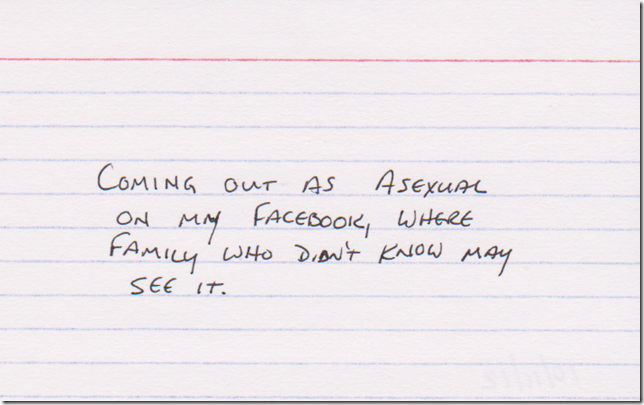 COMING OUT AS ASEXUAL
ON MY FACEBOOK, WHERE
FAMILY WHO DIDN'T KNOW MAY
SEE IT.